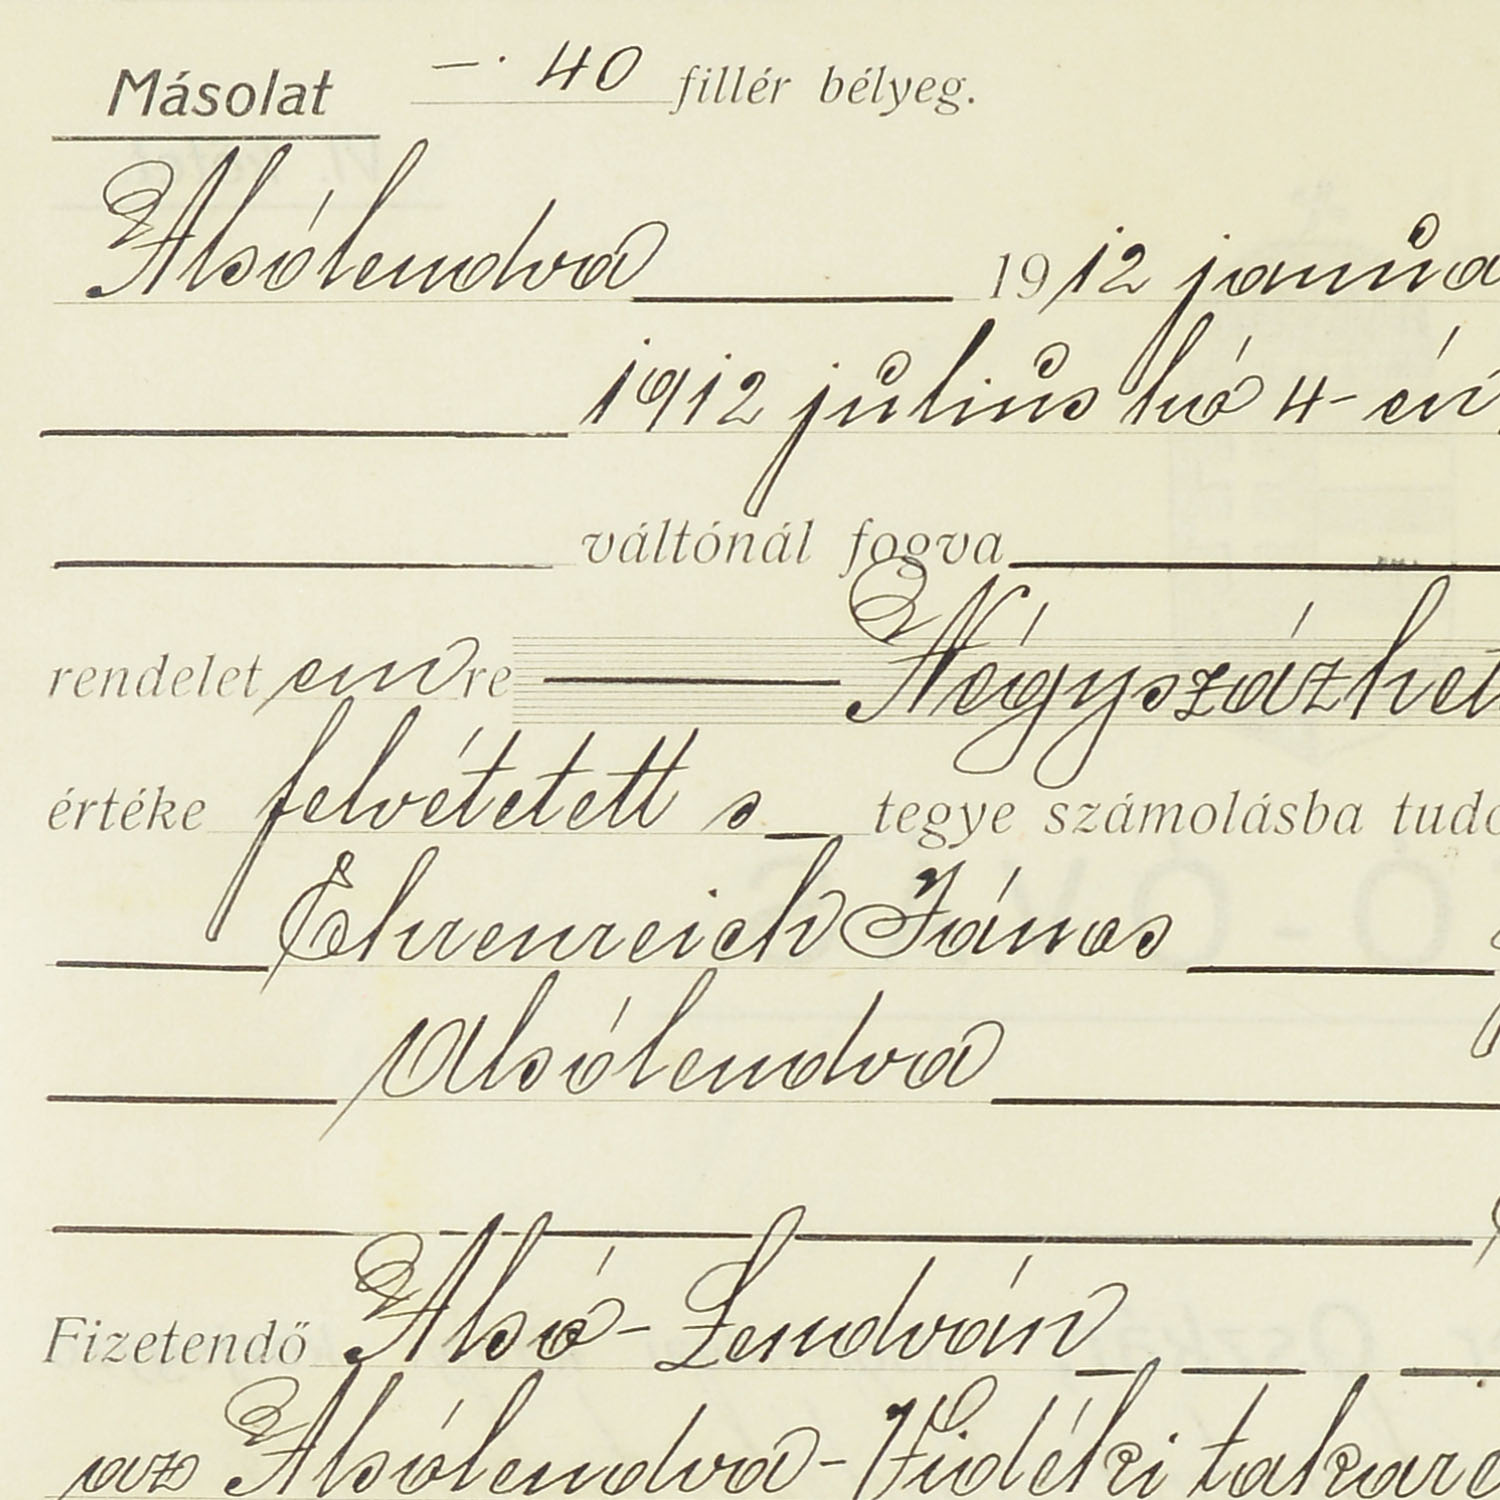 Másolat —· 40 fillér bélyeg.
Alsólendva 1912 janua
1912 július hó 4-én
váltónál fogva
rendelet em re Négyszázhet
értéke felvétetett s tegye számolásba tudo
Ehrenreich János
Alsólendva
Fizetendő Alsó-Lendván
az Alsólendva-Vidéki takaré